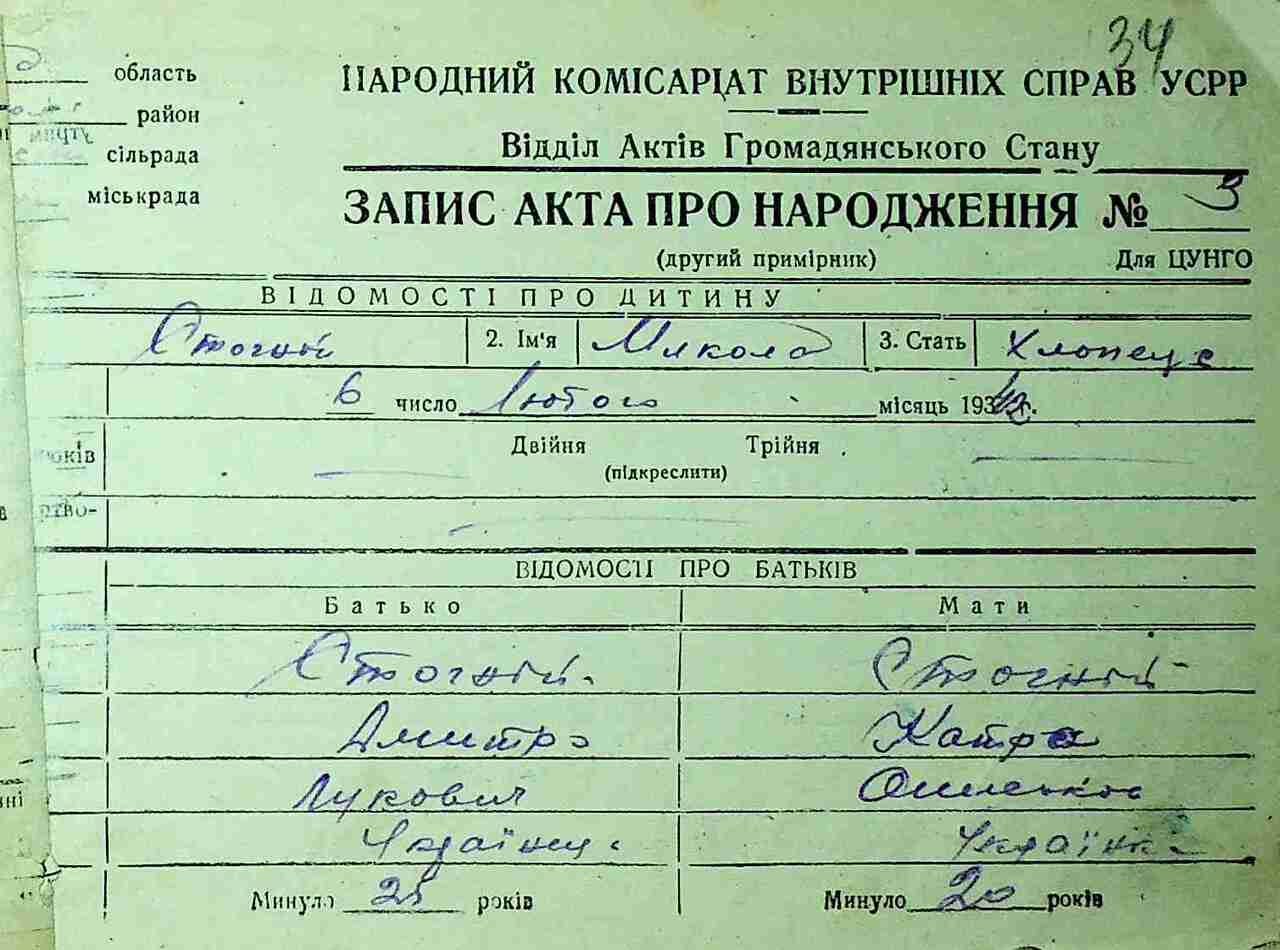 34
область
район
сільрада
міськрада
НАРОДНИЙ КОМІСАРІАТ ВНУТРІШНІХ СПРАВ УСРР
Відділ Актів Громадянського Стану
ЗАПИС АКТА ПРО НАРОДЖЕННЯ № 3
(другий примірник) Для ЦУНГО
ВІДОМОСТІ ПРО ДИТИНУ
Стогній 2. Ім'я Микола 3. Стать Хлопець
6 число Лютого місяць 193 42 р.
років Двійня Трійня
(підкреслити)
ртво-
ВІДОМОСТІ ПРО БАТЬКІВ
Батько Мати
Стогній Стогній
Дмитро Катря
Лукович
Українец Українка
Минуло 25 років Минуло 20 років